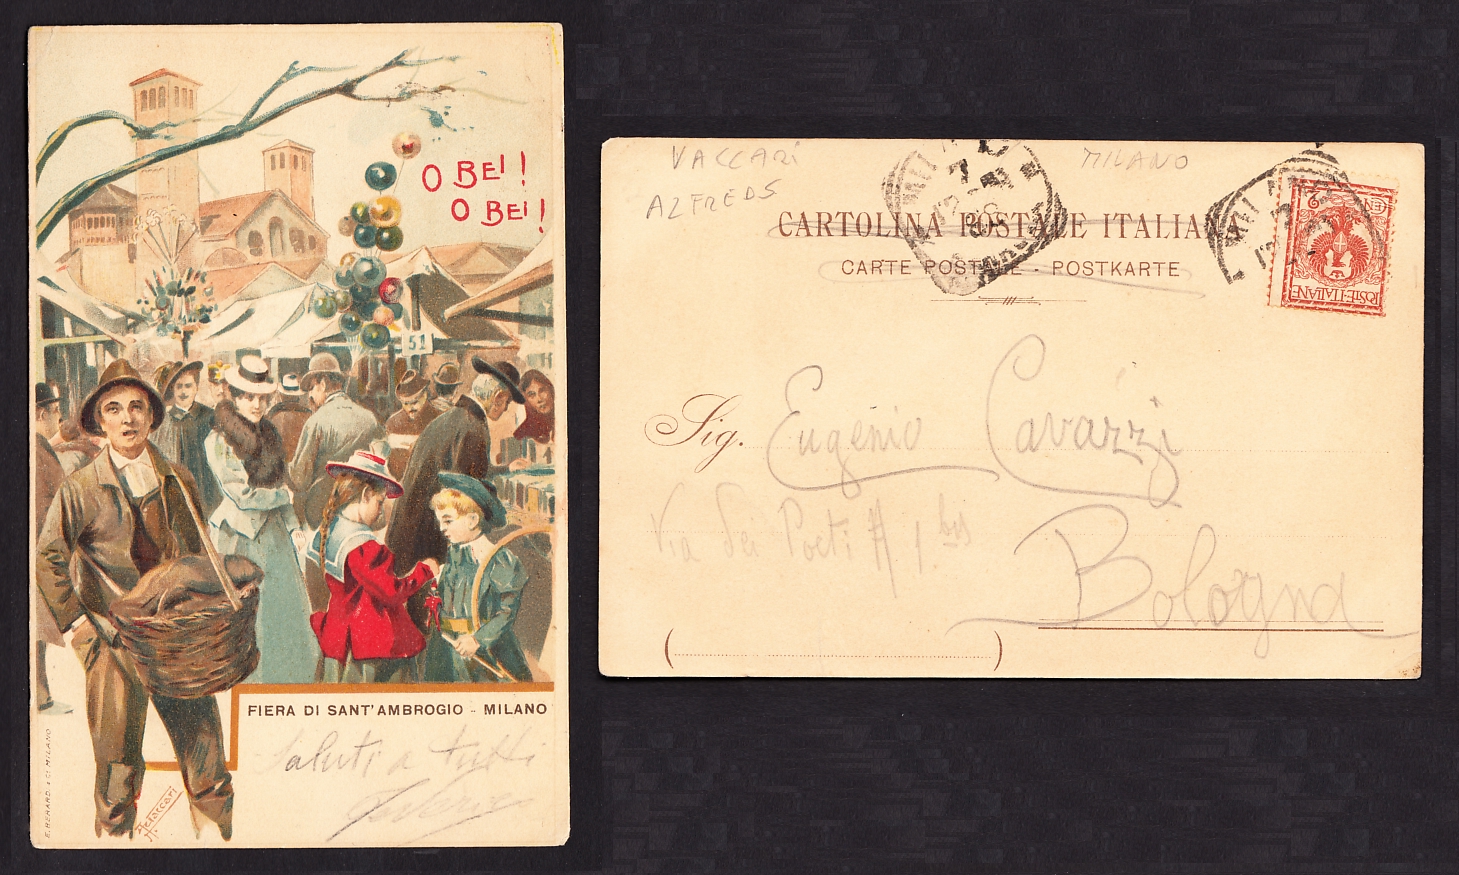 O BEI!
O BEI!
51
FIERA DI SANT'AMBROGIO - MILANO
Saluti a tutti
E. BERARD & Ci MILANO
A. Vaccari
VACCARI
MILANO
ALFREDO
CARTOLINA POSTALE ITALIANA
CARTE POSTALE - POSTKARTE
POSTE·ITALIANE
CEN. 2
Sig. Eugenio Cavazzi
Via dei Poeti N 1 bis
Bologna